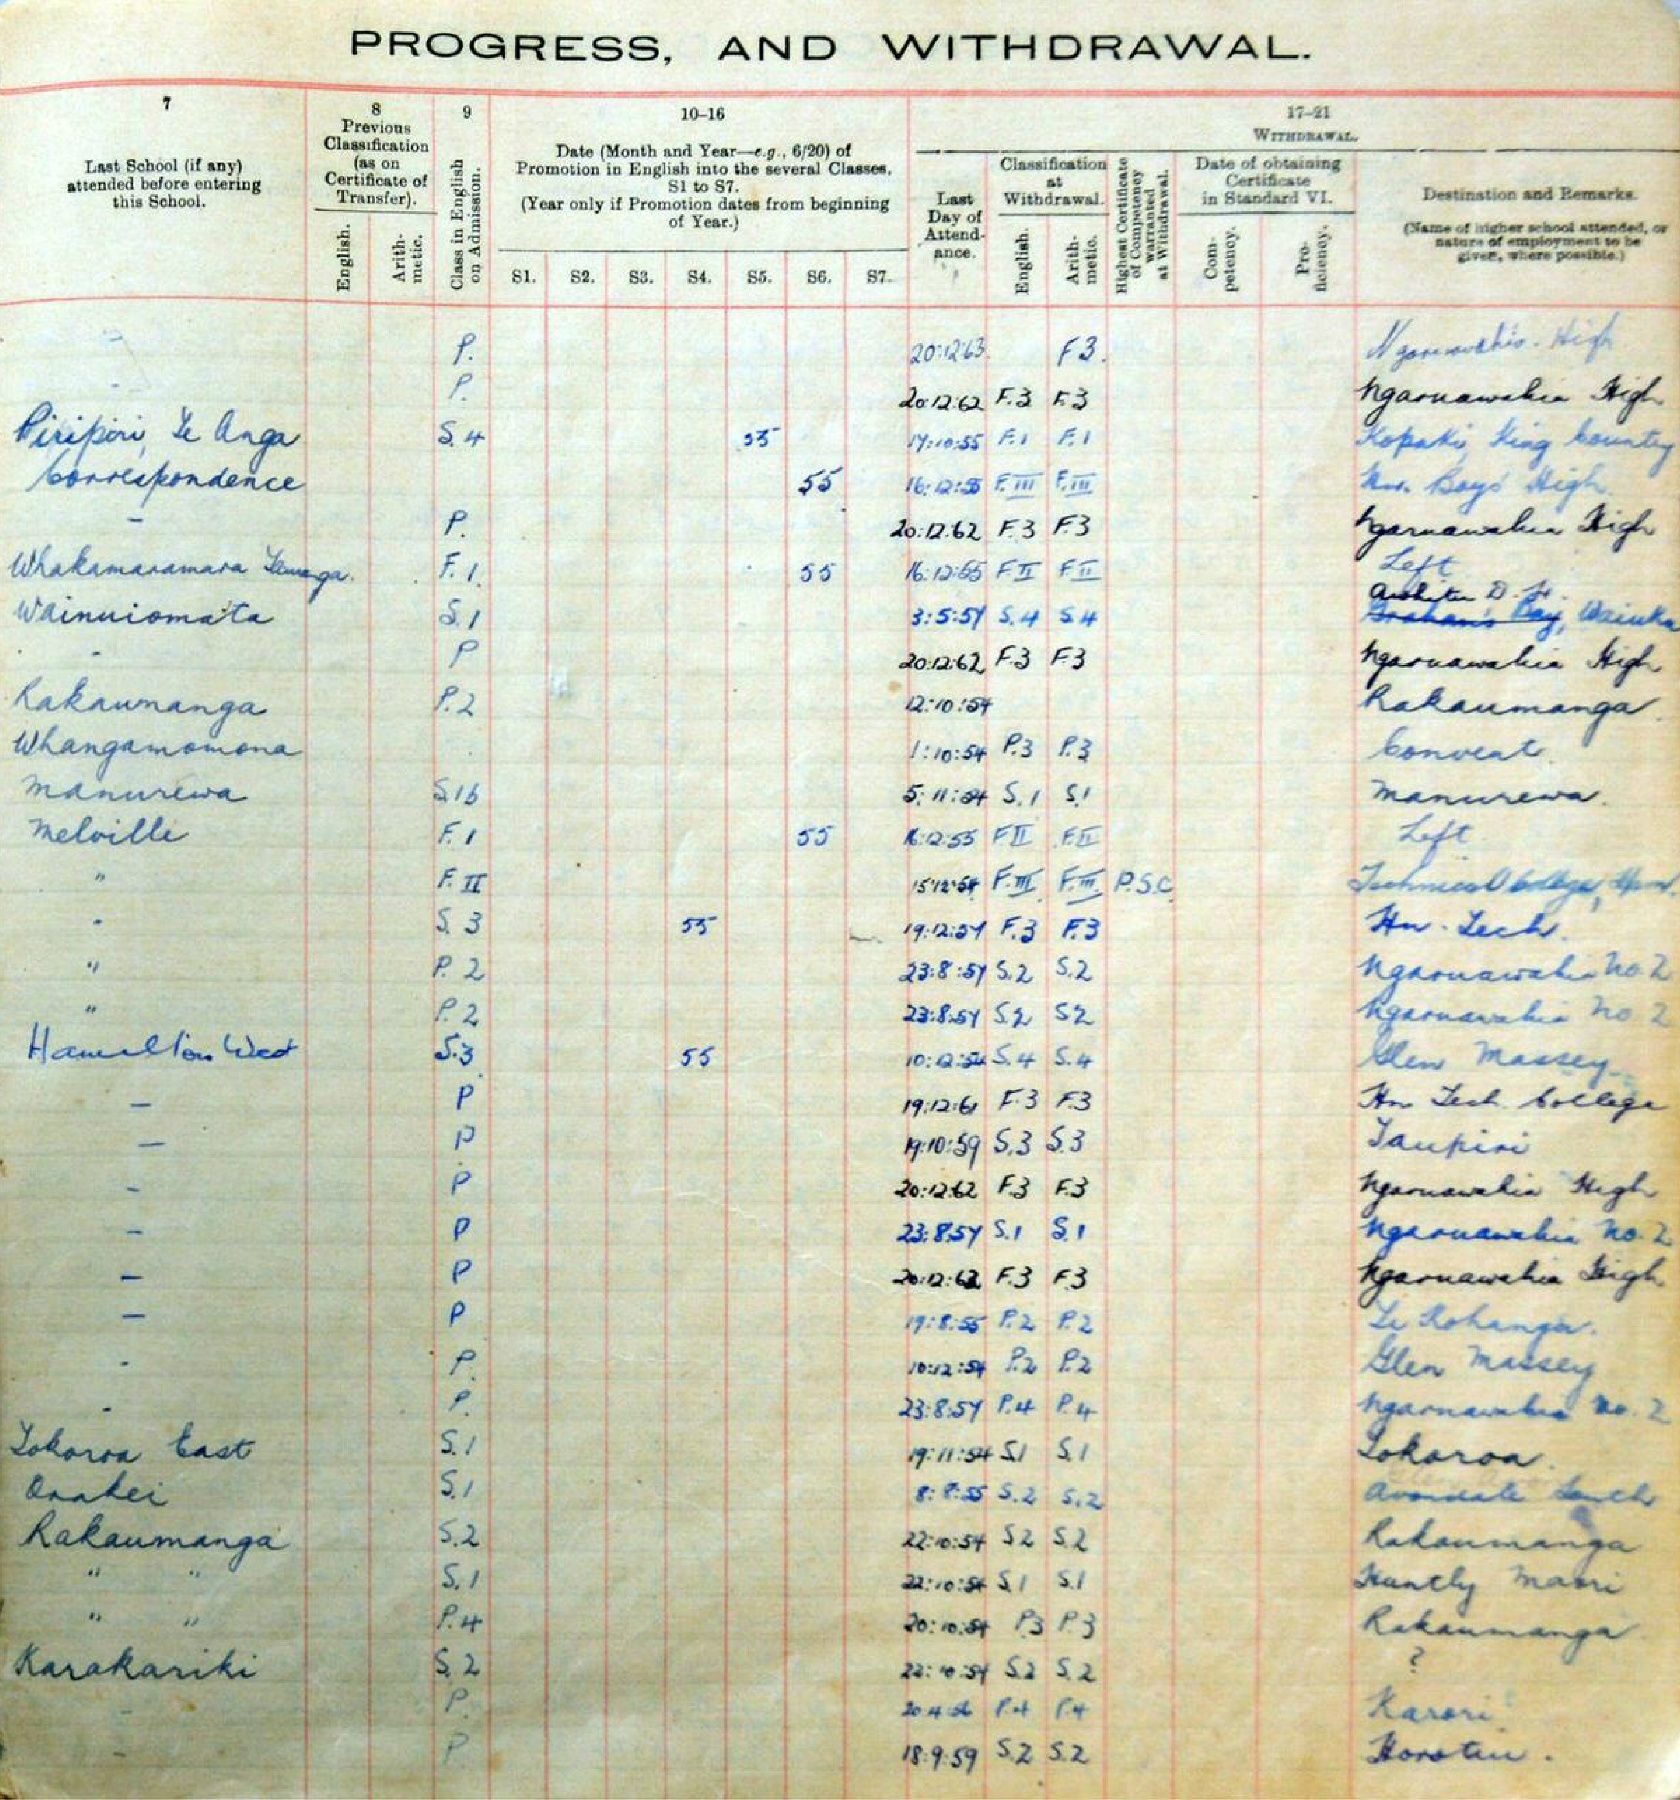 PROGRESS, AND WITHDRAWAL.
7
Last School (if any)
attended before entering
this School.
8
Previous
Classification
(as on
Certificate of
Transfer).
English.
Arith-
metic.
9
Class in English
on Admission.
10–16
Date (Month and Year—e.g., 6/20) of
Promotion in English into the several Classes,
S1 to S7.
(Year only if Promotion dates from beginning
of Year.)
S1. S2. S3. S4. S5. S6. S7.
17–21
WITHDRAWAL.
Last
Day of
Attend-
ance.
Classification
at
Withdrawal.
English.
Arith-
metic.
Highest Certificate
of Competency
warranted
at Withdrawal.
Date of obtaining
Certificate
in Standard VI.
Com-
petency.
Pro-
ficiency.
Destination and Remarks.
(Name of higher school attended, or
nature of employment to be
given, where possible.)
- P. 20:12:63 F3. Ngaruawahia High
- P. 20:12:62 F.3 F.3 Ngaruawahia High
Piripiri, Te Anga S.4 55 17:10:55 F.1 F.1 Kopaki, King Country
Correspondence 55 16:12:55 F.III F.III Hn. Boys' High
- P. 20:12:62 F.3 F.3 Ngaruawahia High
Whakamaramara F.1. 55 16:12:55 F II F II Left
Wainuiomata S.1 3:5:57 S.4 S.4 Awhitu D.H. Graham's Bay, Waiuku
- P 20:12:62 F.3 F.3 Ngaruawahia High
Rakaumanga P.2 12:10:54 Rakaumanga.
Whangamomona 1:10:54 P.3 P.3 Convent.
Manurewa S.1b 5:11:54 S.1 S.1 Manurewa.
Melville F.1 55 16:12:55 F II F.II Left.
" F.II 15:12:54 F.III F.III P.S.C. Technical College,
" S.3 55 19:12:57 F.3 F.3 Hn. Tech.
" P.2 23:8:57 S.2 S.2 Ngaruawahia No.2
" P.2 23:8:57 S.2 S2 Ngaruawahia No 2
Hamilton West S.3 55 10:12:54 S.4 S.4 Glen Massey
— P 19:12:61 F.3 F.3 Hn Tech. College
— P 19:10:59 S.3 S.3 Taupiri
- P 20:12:62 F.3 F.3 Ngaruawahia High
- P 23:8:57 S.1 S.1 Ngaruawahia No.2
— P 20:12:62 F.3 F.3 Ngaruawahia High
— P 19:8:55 P.2 P.2 Te Kohanga.
- P. 10:12:54 P.2 P.2 Glen Massey
- P. 23:8:57 P.4 P.4 Ngaruawahia No.2
Tokoroa East S.1 19:11:54 S1 S.1 Tokoroa.
Orakei S.1 8:8:55 S.2 S.2 Avondale South
Rakaumanga S.2 22:10:54 S2 S.2 Rakaumanga
" " S.1 22:10:54 S.1 S.1 Huntly Maori
" " P.4 20:10:54 P3 P.3 Rakaumanga
Karakariki S.2 22:10:54 S.2 S.2 ?
- P. 20:4:56 P.4 P.4 Karori
- P 18:9:59 S.2 S.2 Horotiu.